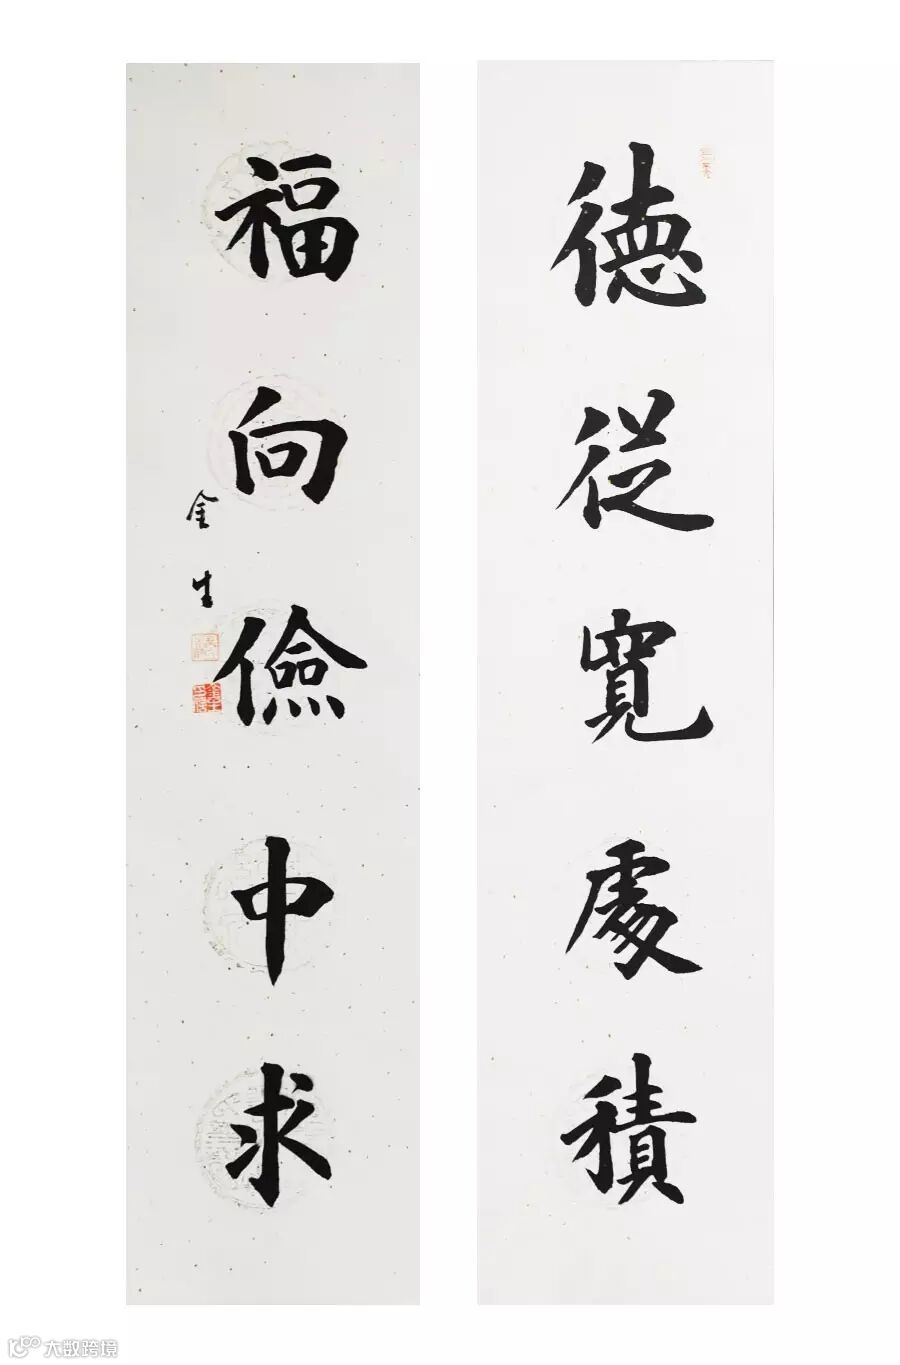 德從寬處積
福向儉中求
金生
大数跨境